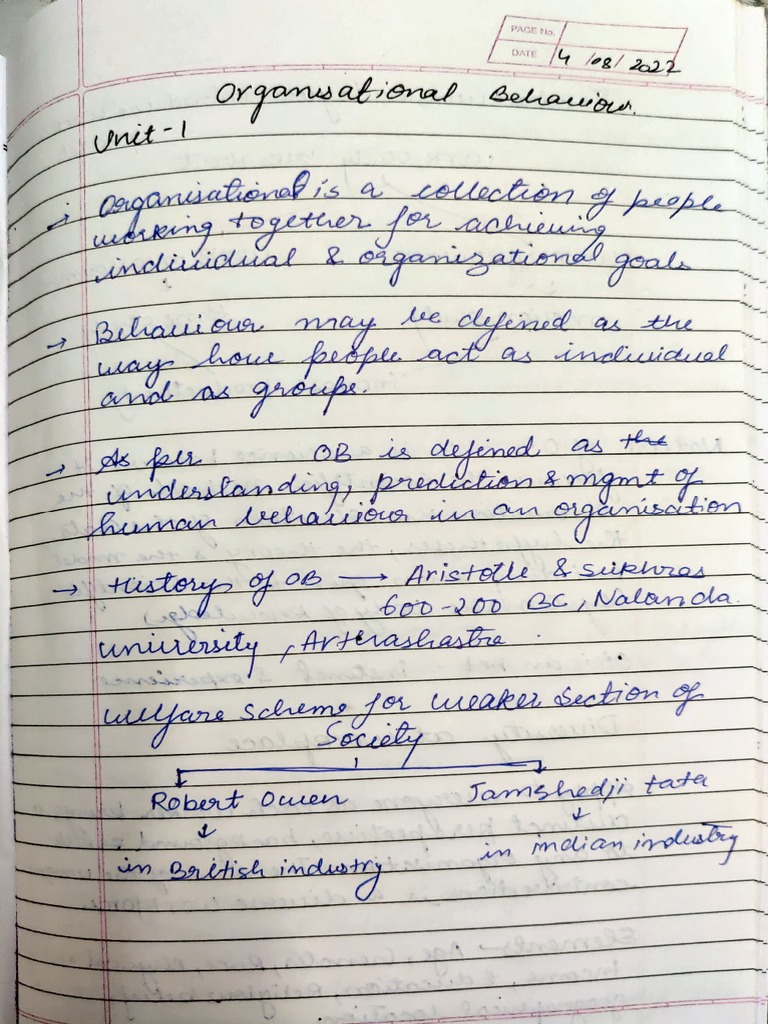 PAGE No.
DATE 4 /08/ 2022
Organisational Behaviour.
Unit-1
→ Organisational is a collection of people
working together for achieving
individual & organizational goals
→ Behaviour may be defined as the
way how people act as individual
and as groups.
→ As per OB is defined as the
understanding, prediction & mgmt of
human behaviour in an organisation
→ History of OB → Aristotle & Sukhras
600-200 BC, Nalanda
university, Arthashastra.
welfare scheme for weaker section of
Society
Robert Owen Jamshedji tata
↓ ↓
in British industry in indian industry